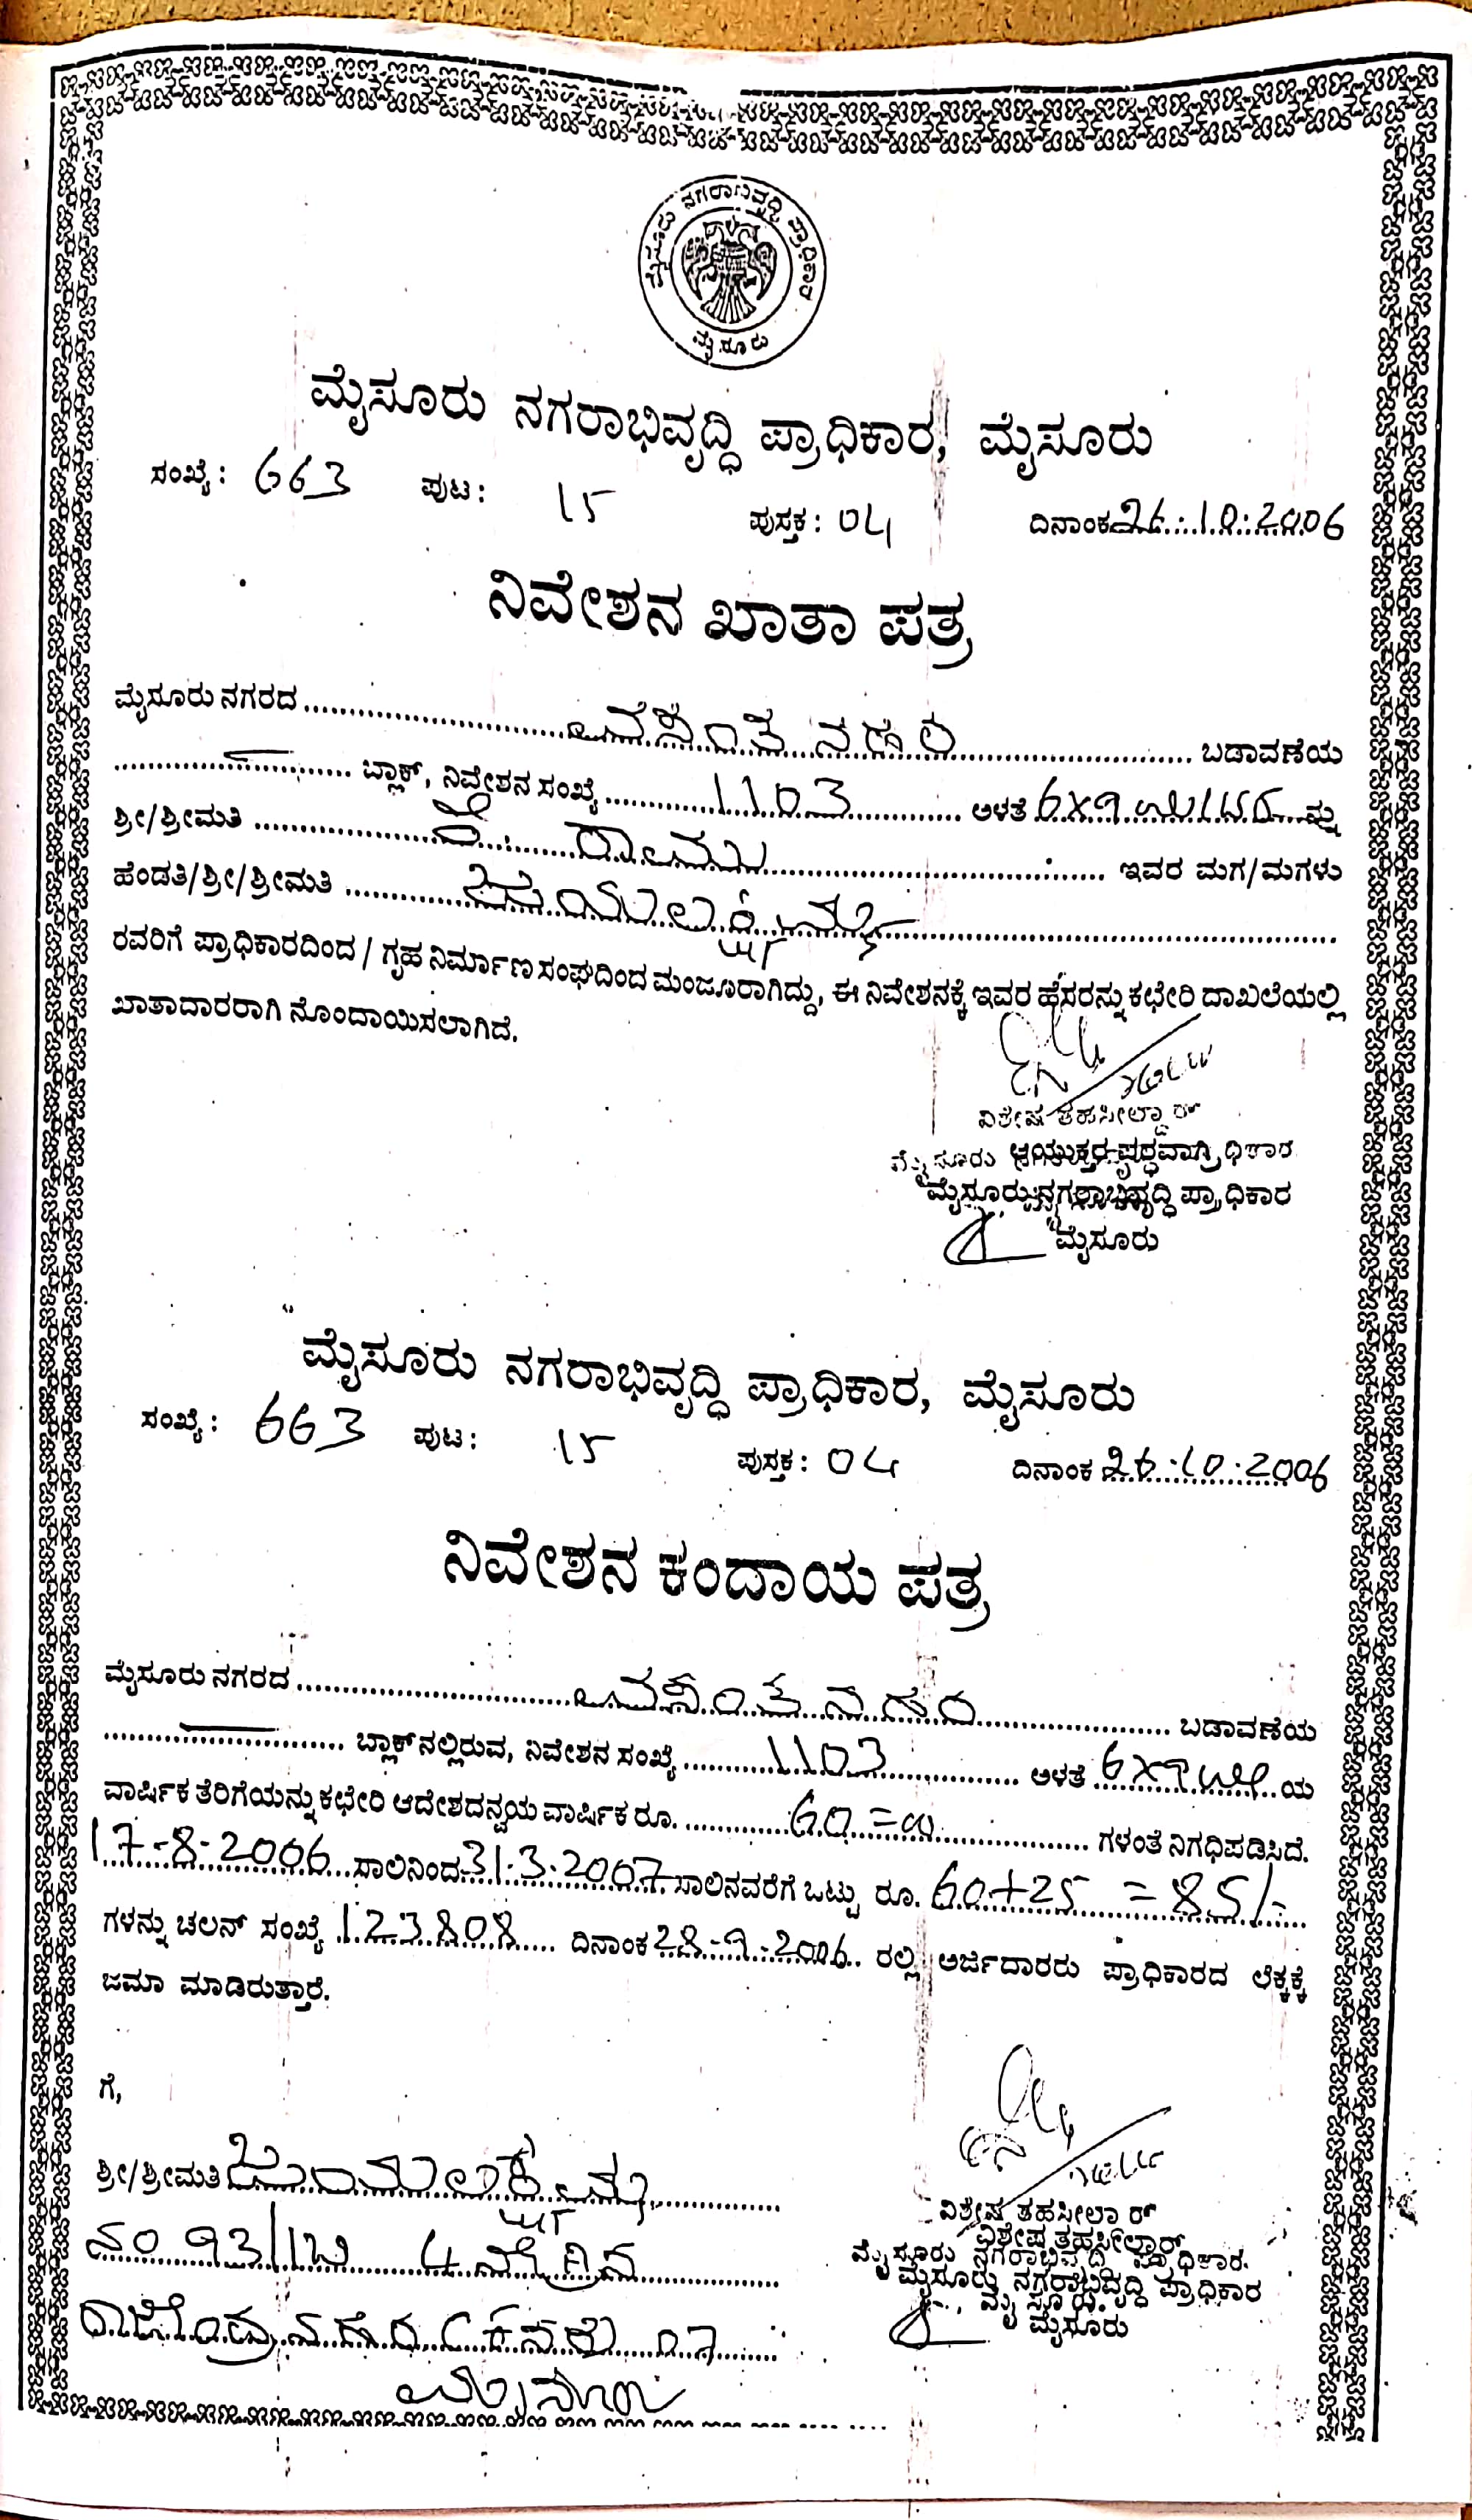 ಮೈಸೂರು ನಗರಾಭಿವೃದ್ಧಿ ಪ್ರಾಧಿಕಾರ
ಮೈಸೂರು
ಮೈಸೂರು ನಗರಾಭಿವೃದ್ಧಿ ಪ್ರಾಧಿಕಾರ, ಮೈಸೂರು
ಸಂಖ್ಯೆ: 663 ಪುಟ: 15 ಪುಸ್ತಕ: 04 ದಿನಾಂಕ 26.10.2006
ನಿವೇಶನ ಖಾತಾ ಪತ್ರ
ಮೈಸೂರು ನಗರದ ವಸಂತ ನಗರ ಬಡಾವಣೆಯ
— ಬ್ಲಾಕ್, ನಿವೇಶನ ಸಂಖ್ಯೆ 1103 ಅಳತೆ 6x9 ನ್ನು
ಶ್ರೀ/ಶ್ರೀಮತಿ ರಾಮು ಇವರ ಮಗ/ಮಗಳು
ಹೆಂಡತಿ/ಶ್ರೀ/ಶ್ರೀಮತಿ ಜಯಲಕ್ಷ್ಮಮ್ಮ
ರವರಿಗೆ ಪ್ರಾಧಿಕಾರದಿಂದ / ಗೃಹ ನಿರ್ಮಾಣ ಸಂಘದಿಂದ ಮಂಜೂರಾಗಿದ್ದು, ಈ ನಿವೇಶನಕ್ಕೆ ಇವರ ಹೆಸರನ್ನು ಕಛೇರಿ ದಾಖಲೆಯಲ್ಲಿ
ಖಾತಾದಾರರಾಗಿ ನೊಂದಾಯಿಸಲಾಗಿದೆ.
ವಿಶೇಷ ತಹಸೀಲ್ದಾರ್
ಮೈಸೂರು ಆಯುಕ್ತರ ಪರವಾಗಿ
ಮೈಸೂರು ನಗರಾಭಿವೃದ್ಧಿ ಪ್ರಾಧಿಕಾರ
ಮೈಸೂರು
ಮೈಸೂರು ನಗರಾಭಿವೃದ್ಧಿ ಪ್ರಾಧಿಕಾರ, ಮೈಸೂರು
ಸಂಖ್ಯೆ: 663 ಪುಟ: 15 ಪುಸ್ತಕ: 04 ದಿನಾಂಕ 26.10.2006
ನಿವೇಶನ ಕಂದಾಯ ಪತ್ರ
ಮೈಸೂರು ನಗರದ ವಸಂತ ನಗರ ಬಡಾವಣೆಯ
— ಬ್ಲಾಕ್‌ನಲ್ಲಿರುವ, ನಿವೇಶನ ಸಂಖ್ಯೆ 1103 ಅಳತೆ 6x9 ಯ
ವಾರ್ಷಿಕ ತೆರಿಗೆಯನ್ನು ಕಛೇರಿ ಆದೇಶದನ್ವಯ ವಾರ್ಷಿಕ ರೂ. 60=00 ಗಳಂತೆ ನಿಗಧಿಪಡಿಸಿದೆ.
17-8-2006 ಸಾಲಿನಿಂದ 31.3.2007 ಸಾಲಿನವರೆಗೆ ಒಟ್ಟು ರೂ. 60+25 = 85/-
ಗಳನ್ನು ಚಲನ್ ಸಂಖ್ಯೆ 123808 ದಿನಾಂಕ 28-9-2006 ರಲ್ಲಿ ಅರ್ಜಿದಾರರು ಪ್ರಾಧಿಕಾರದ ಲೆಕ್ಕಕ್ಕೆ
ಜಮಾ ಮಾಡಿರುತ್ತಾರೆ.
ಗೆ,
ಶ್ರೀ/ಶ್ರೀಮತಿ ಜಯಲಕ್ಷ್ಮಮ್ಮ
ನಂ 93/1ಬಿ 4 ನೇ ಕ್ರಾಸ
ರಾಜೇಂದ್ರ ನಗರ 07
ಮೈಸೂರು
ವಿಶೇಷ ತಹಸೀಲ್ದಾರ್
ವಿಶೇಷ ತಹಸೀಲ್ದಾರ್
ಮೈಸೂರು ನಗರಾಭಿವೃದ್ಧಿ ಪ್ರಾಧಿಕಾರ.
ಮೈಸೂರು ನಗರಾಭಿವೃದ್ಧಿ ಪ್ರಾಧಿಕಾರ
ಮೈಸೂರು.
ಮೈಸೂರು